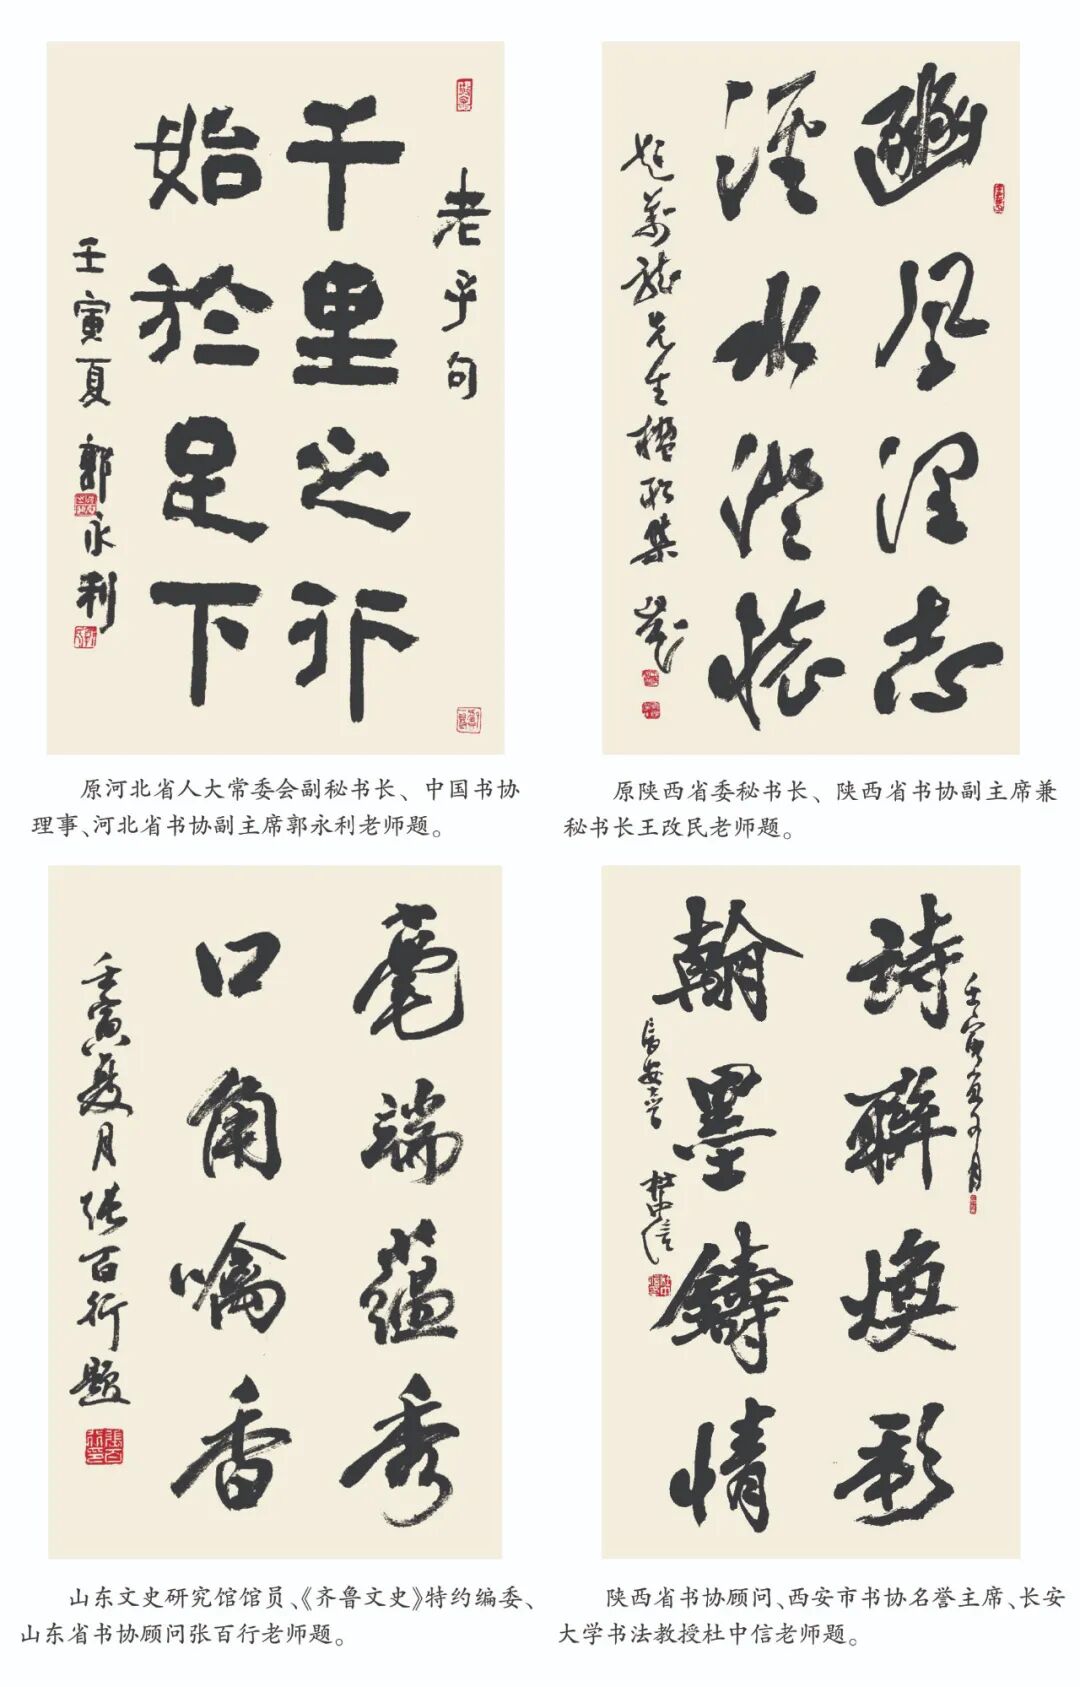 老子句
千里之行
始於足下
壬寅夏 郭永利
豳風潤志
涇水澄懷
題萬龍先生楹聯集
原河北省人大常委会副秘书长、中国书协
理事、河北省书协副主席郭永利老师题。
原陕西省委秘书长、陕西省书协副主席兼
秘书长王改民老师题。
毫端蘊秀
口角噙香
壬寅夏月張百行題
壬寅
詩聯煥彩
翰墨鑄情
長安
杜中信
山东文史研究馆馆员、《齐鲁文史》特约编委、
山东省书协顾问张百行老师题。
陕西省书协顾问、西安市书协名誉主席、长安
大学书法教授杜中信老师题。